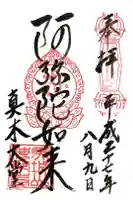 奉拝
平成二十七年
八月九日
阿弥陀如来
真木大堂